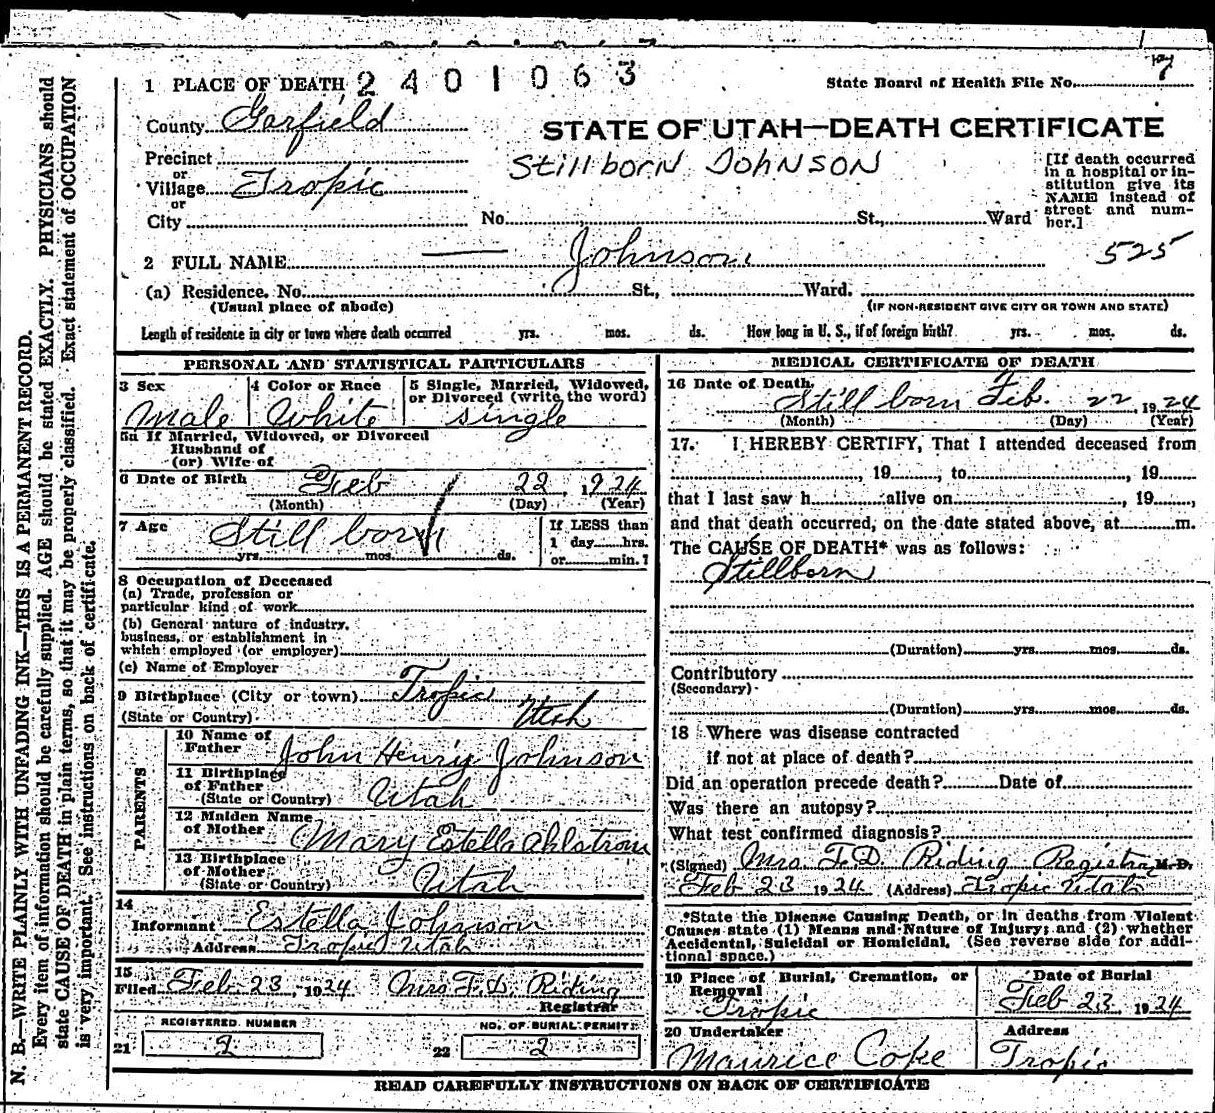 7
1 PLACE OF DEATH 2401063 State Board of Health File No.
County Garfield
STATE OF UTAH—DEATH CERTIFICATE
Precinct
Stillborn Johnson
or
Village Tropic
or
City No. St., Ward
[If death occurred
in a hospital or in-
stitution give its
NAME instead of
street and num-
ber.]
525
2 FULL NAME — Johnson
(a) Residence. No. St., Ward.
(Usual place of abode) (IF NON-RESIDENT GIVE CITY OR TOWN AND STATE)
Length of residence in city or town where death occurred yrs. mos. ds. How long in U. S., if of foreign birth? yrs. mos. ds.
PERSONAL AND STATISTICAL PARTICULARS
3 Sex 4 Color or Race 5 Single, Married, Widowed,
or Divorced (write the word)
Male White single
5a If Married, Widowed, or Divorced
Husband of
(or) Wife of
6 Date of Birth Feb 22, 1924
(Month) (Day) (Year)
7 Age Still born
yrs. mos. ds.
If LESS than
1 day hrs.
or min.?
8 Occupation of Deceased
(a) Trade, profession or
particular kind of work
(b) General nature of industry,
business, or establishment in
which employed (or employer)
(c) Name of Employer
9 Birthplace (City or town) Tropic
(State or Country) Utah
PARENTS
10 Name of
Father John Henry Johnson
11 Birthplace
of Father
(State or Country) Utah
12 Maiden Name
of Mother Mary Estella Ahlstrom
13 Birthplace
of Mother
(State or Country) Utah
14
Informant Estella Johnson
Address Tropic Utah
15
Filed Feb 23, 1924 Mrs F. D. Riding
Registrar
REGISTERED NUMBER NO. OF BURIAL PERMIT
21 2 22 2
MEDICAL CERTIFICATE OF DEATH
16 Date of Death Still born Feb. 22, 1924
(Month) (Day) (Year)
17. I HEREBY CERTIFY, That I attended deceased from
, 19 , to , 19
that I last saw h alive on , 19 ,
and that death occurred, on the date stated above, at m.
The CAUSE OF DEATH* was as follows:
Stillborn
(Duration) yrs. mos. ds.
Contributory
(Secondary)
(Duration) yrs. mos. ds.
18 Where was disease contracted
if not at place of death?
Did an operation precede death? Date of
Was there an autopsy?
What test confirmed diagnosis?
(Signed) Mrs. F. D. Riding Registrar M. D.
Feb 23 1924 (Address) Tropic Utah
*State the Disease Causing Death, or in deaths from Violent
Causes state (1) Means and Nature of Injury; and (2) whether
Accidental, Suicidal or Homicidal. (See reverse side for addi-
tional space.)
19 Place of Burial, Cremation, or
Removal
Tropic
Date of Burial
Feb 23, 1924
20 Undertaker Address
Maurice Cope Tropic
READ CAREFULLY INSTRUCTIONS ON BACK OF CERTIFICATE
N. B.—WRITE PLAINLY WITH UNFADING INK—THIS IS A PERMANENT RECORD.
Every item of information should be carefully supplied. AGE should be stated EXACTLY. PHYSICIANS should
state CAUSE OF DEATH in plain terms, so that it may be properly classified. Exact statement of OCCUPATION
is very important. See instructions on back of certificate.